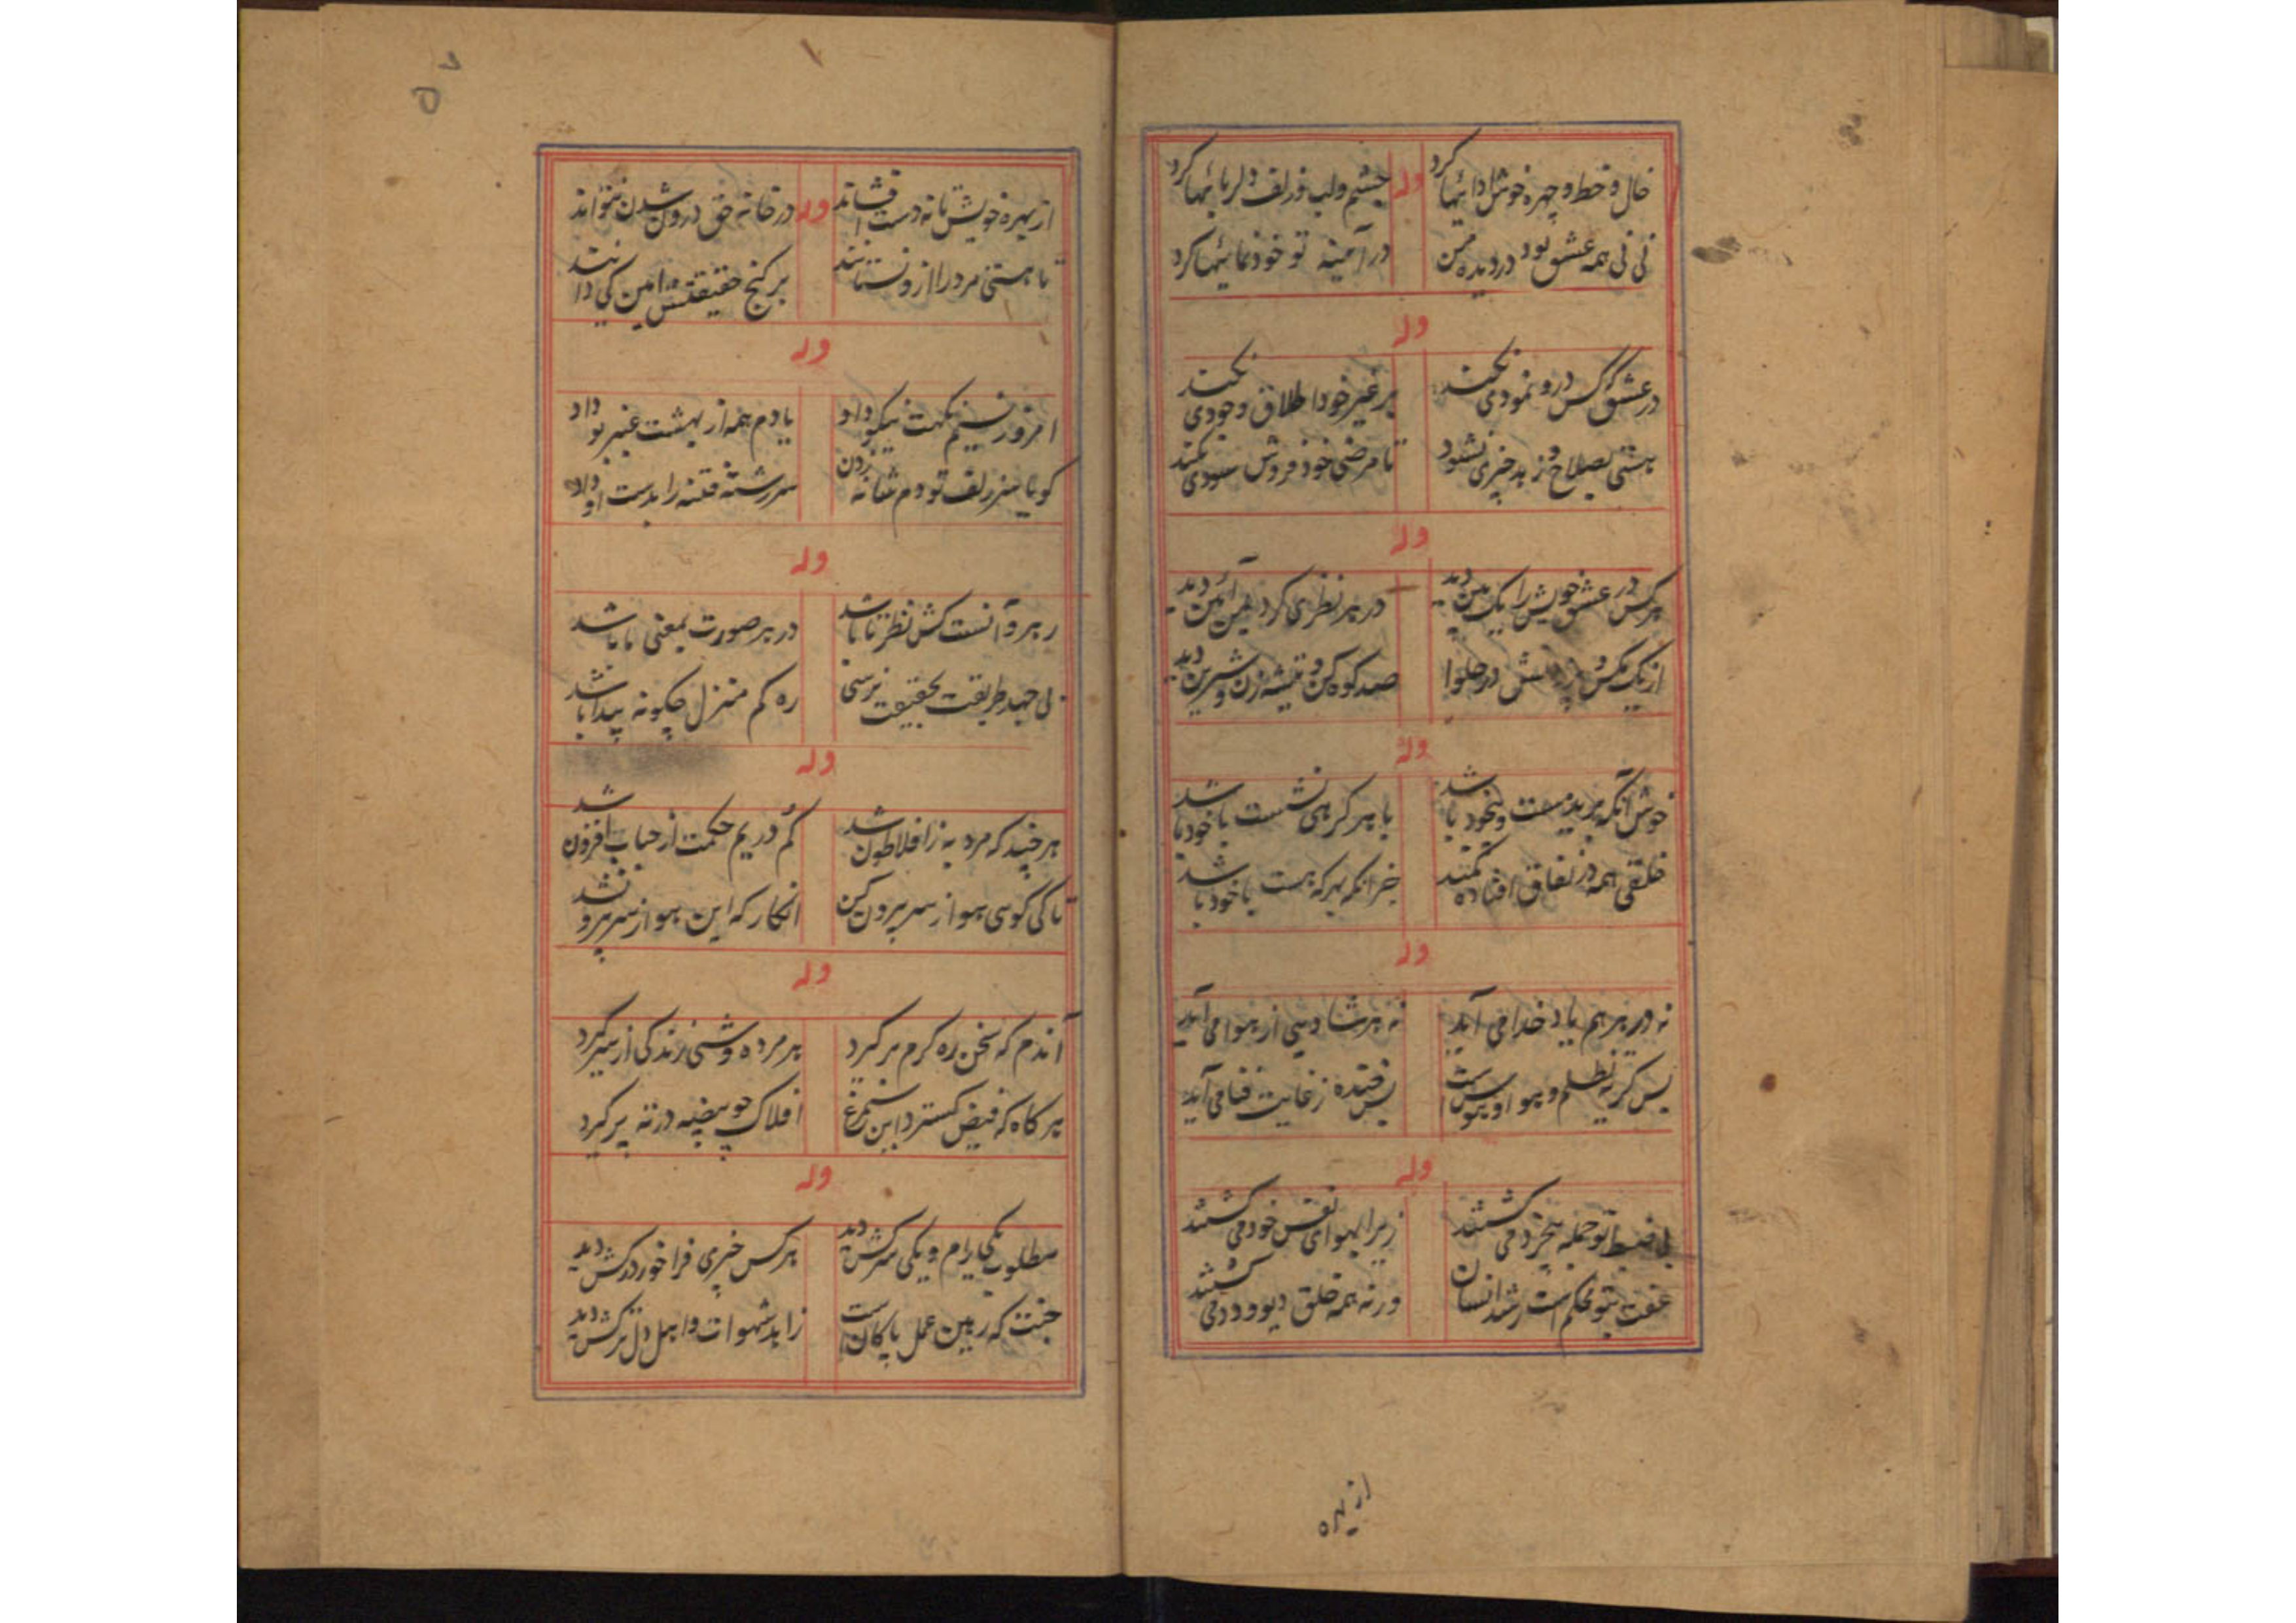 خال و خط و چهره خوش ادائیها کرد
وله
چشم و لب و زلف دلربائیها کرد
نی نی همه عشق بود در دیده من
در آمینه تو خودنمائیها کرد
وله
در عشق تو کس در و نمودی نکند
بر غیر خود اطلاق وجودی نکند
هستی بصلاح و زهد چیزی نشود
تا مرضی خود فروش سودی نکند
وله
هر کس در عشق خویش را یک بین دید
در هر نظری کرد همین آئین دید
از یک مگس در حلوا
صد کوه کن و تیشه زن و شیرین دید
وله
خوش آنکه بد مست و بیخود باشد
با هر که همی نشست با خود باشد
خلقی همه در نفاق افتاده کمند
جز آنکه بهر که هست با خود باشد
وله
نه در هر هم یاد خدا می آید
نه هر شادیی از هوا می آید
بس گریه ظلم و هوا و هوس است
بس خنده ز غایت فنا می آید
وله
بی ضبط تو جمله بخرد می کشتند
زیرا بهوای نفس خود می کشتند
عفت بتو محکم است رشد انسان
ورنه همه خلق دیو و دد می کشتند
از بهره
۵۷
از بهره خویش تا نه دست افشاند
وله
در خانه حق درون شدن نتواند
تا هستی مرد را ازو نستانند
بر گنج حقیقتش امین کی دانند
وله
امروز نسیم نکهت نیکو داد
یادم همه از بهشت عنبر بو داد
گویا سر زلف تو دم شانه زدن
سررشته فتنه را بدست او داد
وله
رهرو آنست کش نظر تا باشد
در هر صورت بمعنی ما باشد
بی جهد طریقت بحقیقت نرسی
ره گم منزل چگونه پیدا باشد
وله
هر چند که مرد به ز افلاطون شد
کم دریم حکمت از حباب افزون شد
تا کی گوسی هوا از سر بیرون کن
انگار که این هوا از سر بیرون شد
وله
آندم که سخن ره کرم برگیرد
هر مرده وشی زندگی از سر گیرد
هر گاه که فیض گسترد این سیمرغ
افلاک چو بیضه در ته پر گیرد
وله
مطلوب یکی رام و یکی سرکش دید
هر کس خبری فراخور در کش دید
جنت که رهین عمل پاکان است
زاهد شهوات و اهل دل ترکش دید